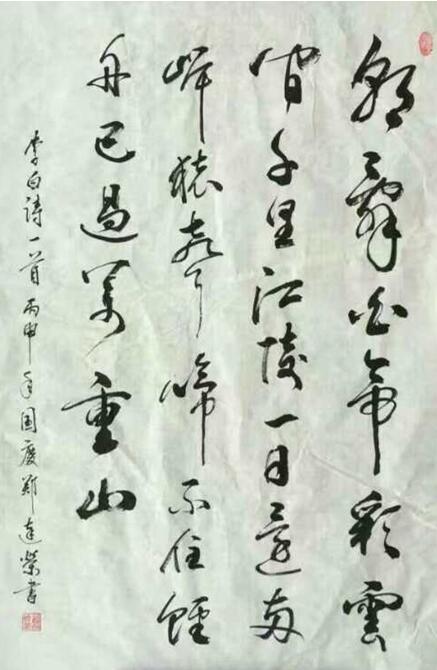 朝辭白帝彩雲
間千里江陵一日還兩
岸猿聲啼不住輕
舟已過萬重山
李白詩一首丙申年国慶鄭達榮書